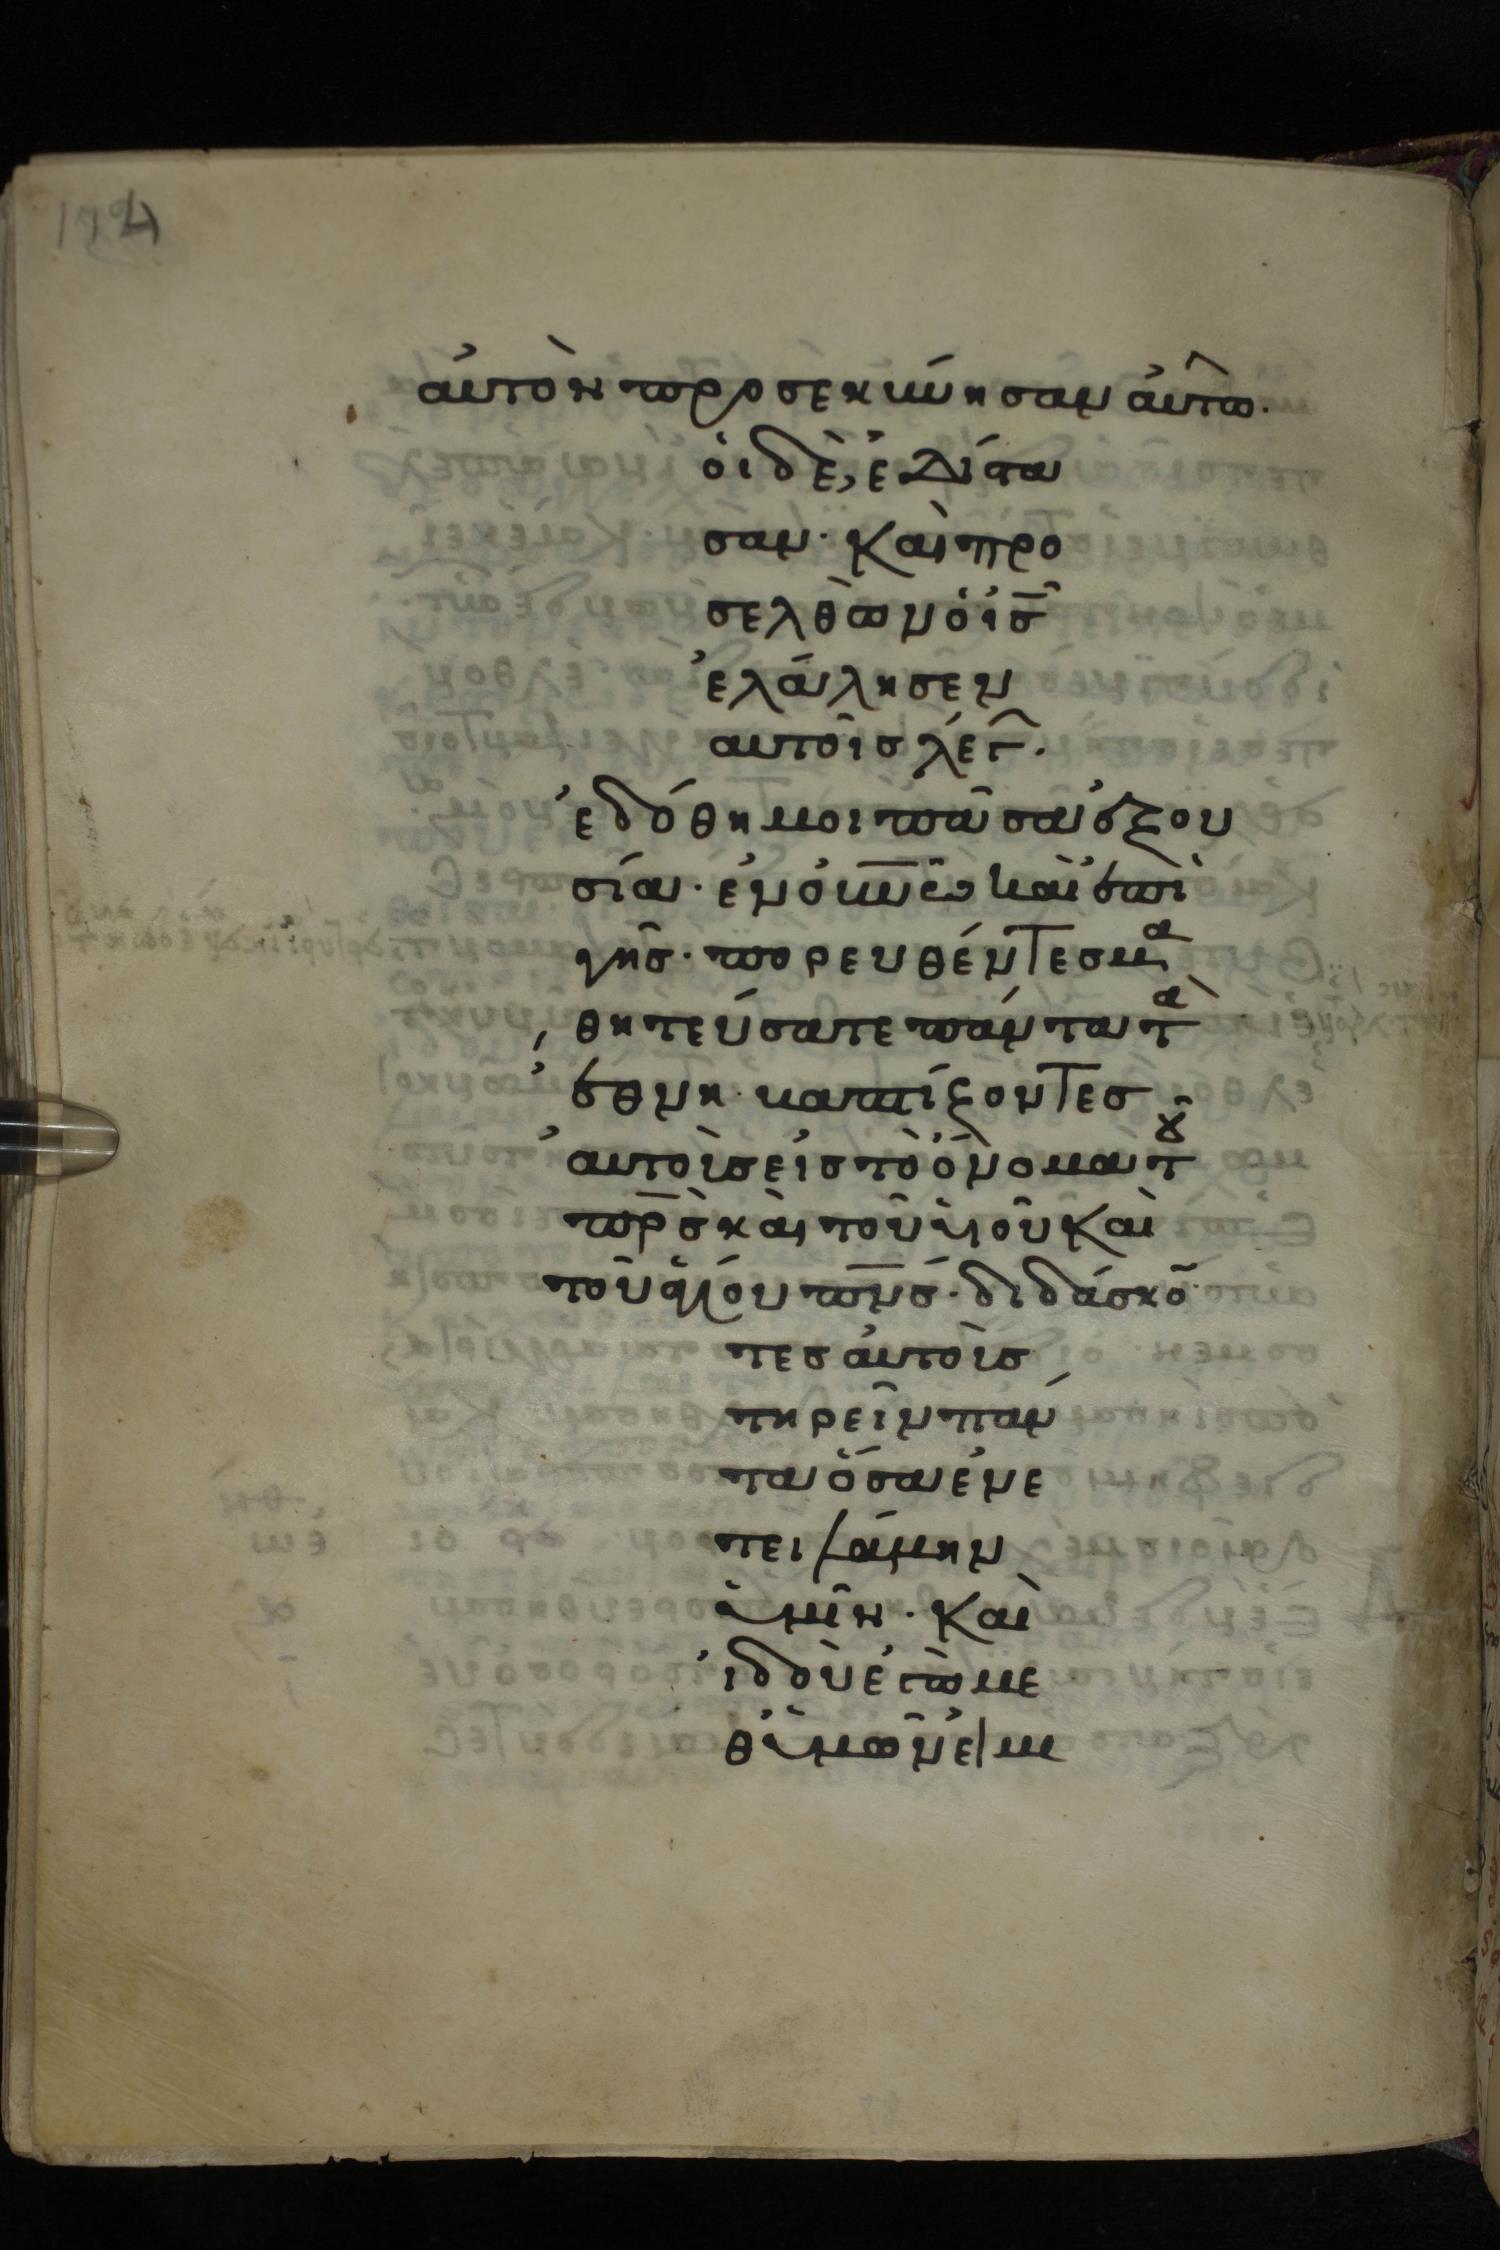 αὐτὸν προσεκύνησαν αὐτῶ.
ὁι δὲ, ἐδίστα
σαν. καὶ προ
σελθὼν ὁ ἰς̅
ἐλάλησεν
αυτοῖσ λέγ.
ἐδόθη μοι πᾶσα ἐξου
σία. ἐν ὀυν̅ῶ καὶ ἐπὶ
γῆσ. πορευθέντεσ μα
θητεύσατε πάντα τὰ
ἔθνη. βαπτίζοντεσ
ἀυτοὺσ εἰσ τὸ ὄνομα τοῦ
πρ̅ὸσ καὶ τοῦ ὑιοῦ καὶ
τοῦ ἁγίου πν̅σ. διδάσκο̅
τεσ ἀυτοὺσ
τηρεῖν πάν
τα ὅσα ἐνε
τειλάμην
ὑμῖν. καὶ
ἰδοὺ ἐγὼ με
θ ὑμῶν εἰμι